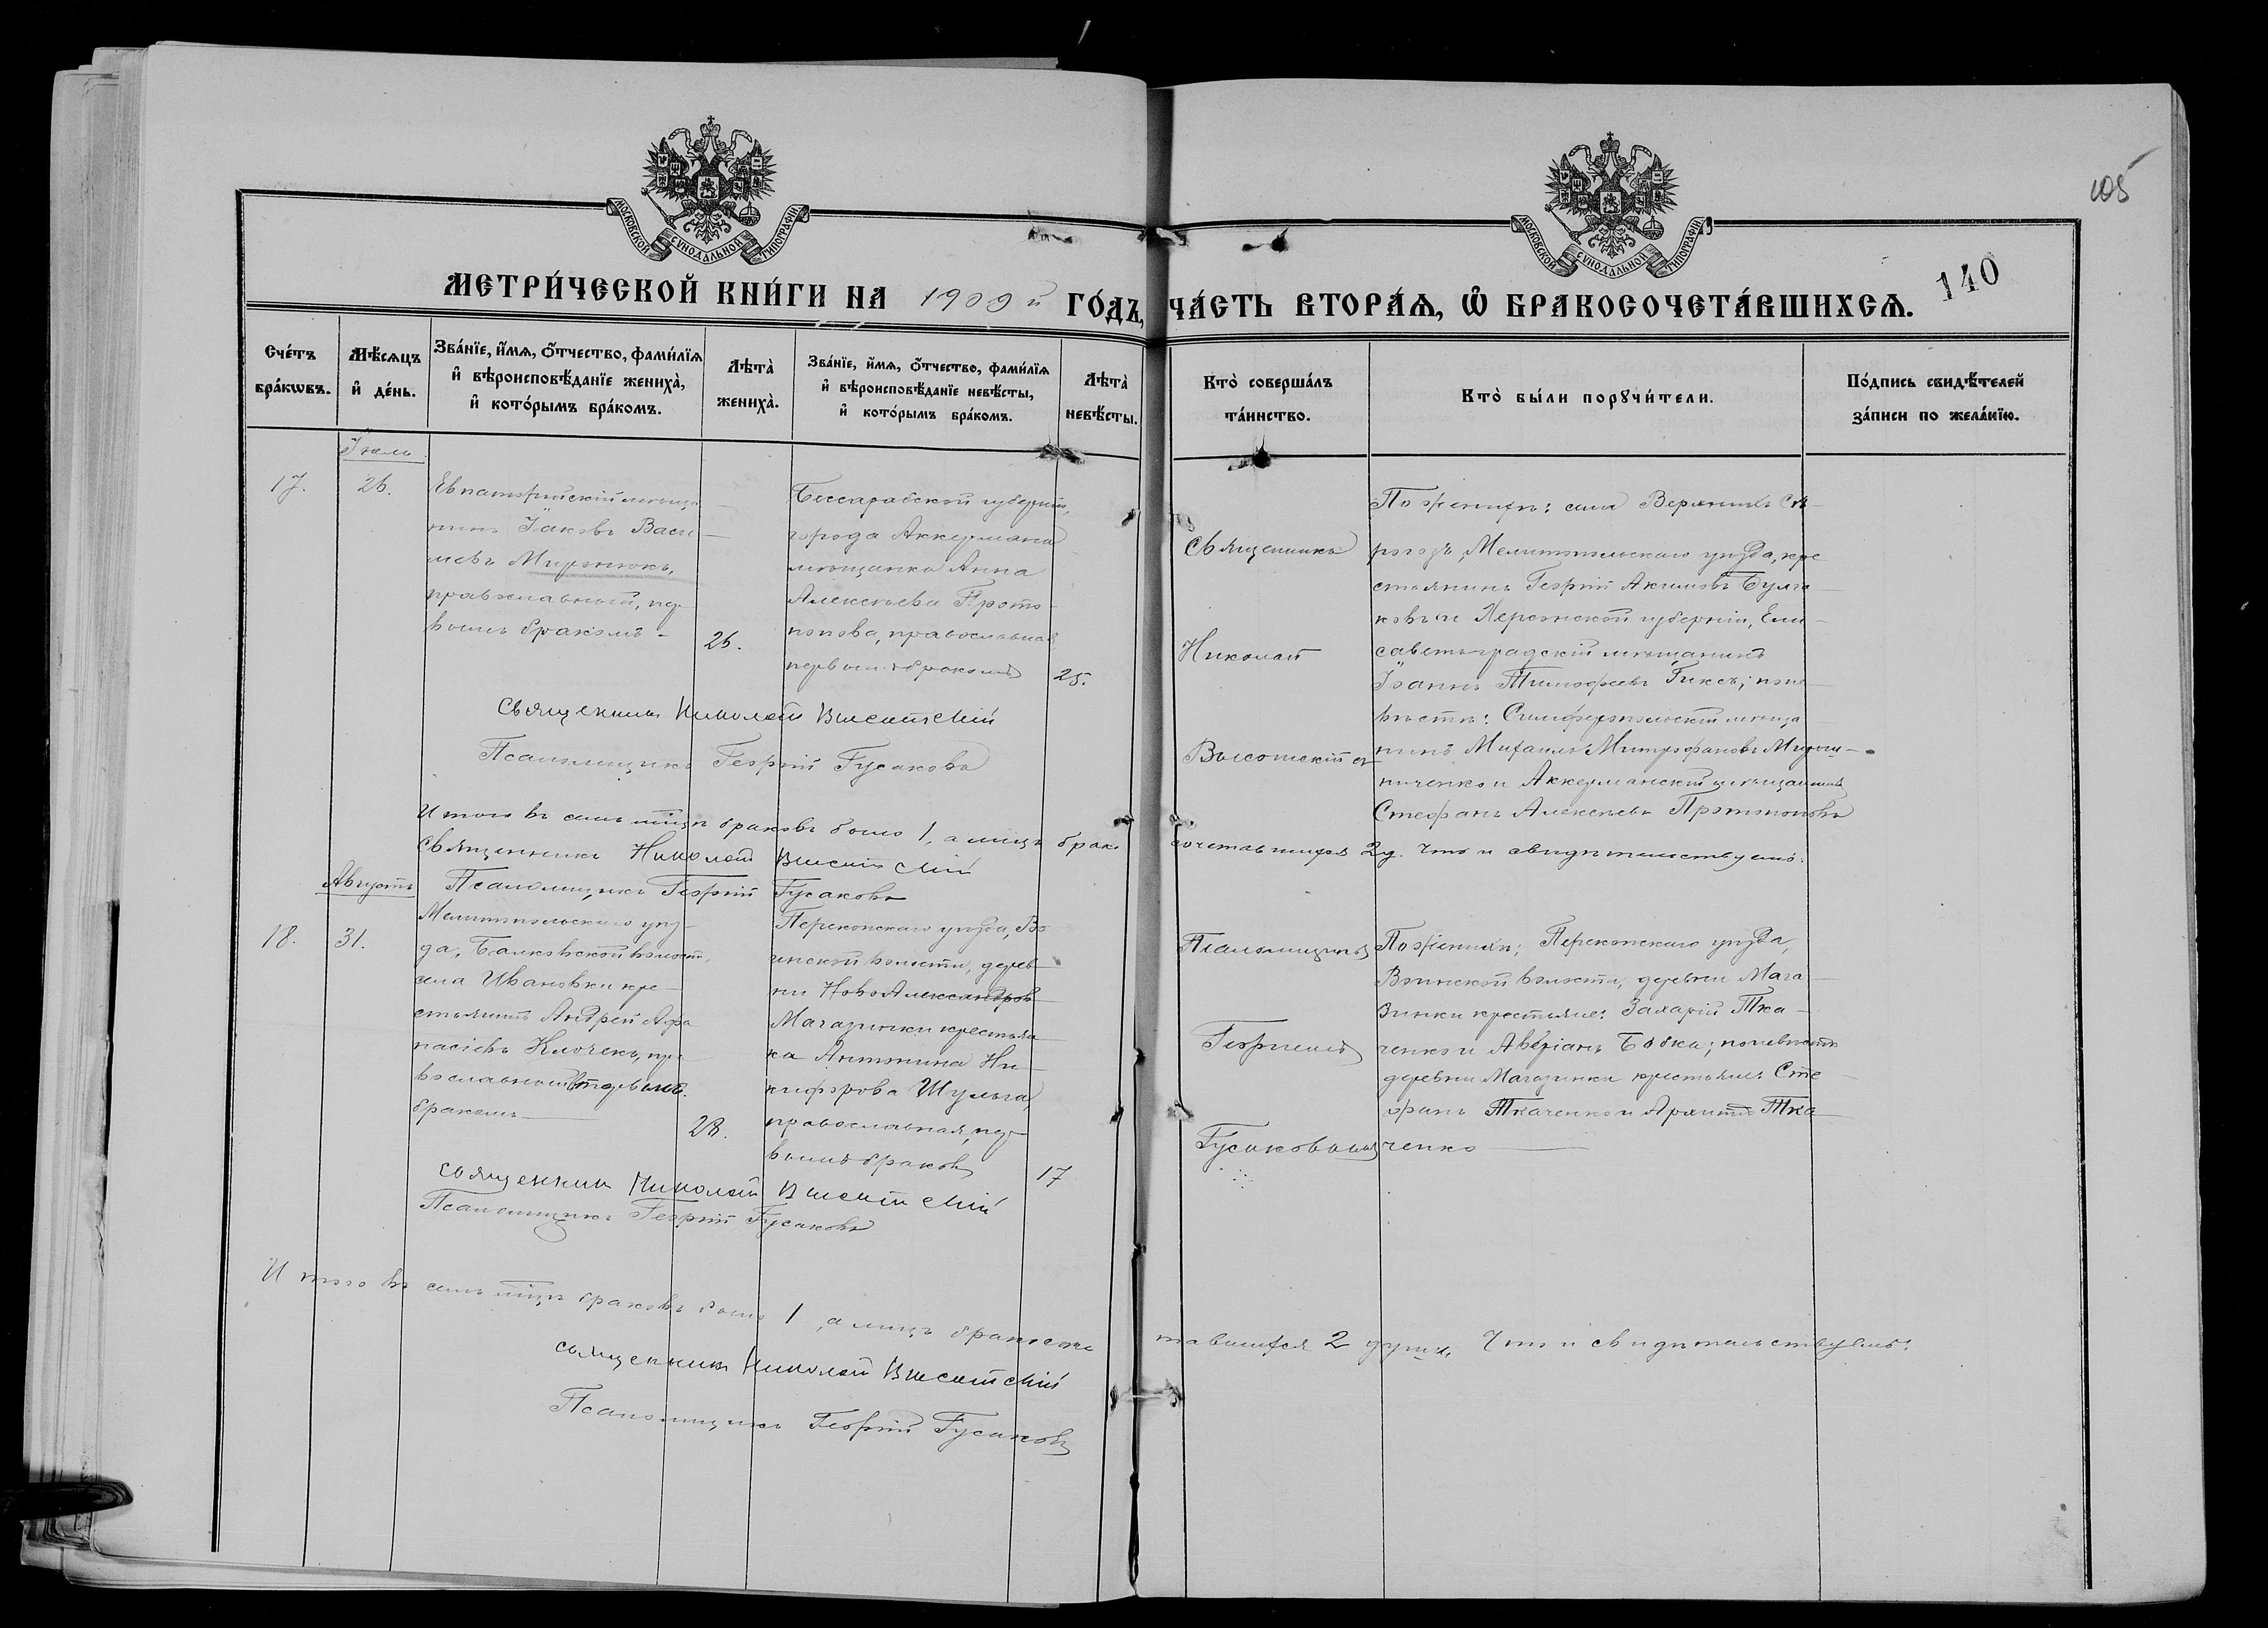 105
140
МОСКОВСКОЙ СѴНОДАЛЬНОЙ ТИПОГРАФІИ
МОСКОВСКОЙ СѴНОДАЛЬНОЙ ТИПОГРАФІИ
МЕТРИ́ЧЕСКОЙ КНИ́ГИ НА 1909 й ГО́ДЪ, ЧА́СТЬ ВТОРА́Я, Ѡ БРАКОСОЧЕТА́ВШИХСЯ.
Сче́тъ бра́кѡвъ.
Мѣ́сяцъ и҆ де́нь.
Зва́нїе, и҆́мя, ѻ҆́тчество, фами́лїя и҆ вѣроисповѣ́данїе жениха̀, и҆ кото́рымъ бра́комъ.
Лѣта̀ жениха̀.
Зва́нїе, и҆́мя, ѻ҆́тчество, фами́лїя и҆ вѣроисповѣ́данїе невѣ́сты, и҆ кото́рымъ бра́комъ.
Лѣта̀ невѣ́сты.
Кто̀ соверша́лъ та́инство.
Кто̀ бы́ли порꙋчи́тели.
По́дпись свидѣ́телей за́писи по жела́нїю.
Іюль
17.
26.
Евпаторійскій мѣща-
нинъ Іаковъ Васи-
льевъ Миронюкъ,
православный, пер-
вымъ бракомъ
26.
Бессарабской губерніи,
города Аккермана
мѣщанка Анна
Алексѣева Прото-
попова, православная
первымъ бракомъ
25.
Священникъ
Николай
Высотскій съ
По женихѣ: села Верхнихъ Сѣ-
рогозъ, Мелитопольскаго уѣзда, кре
стьянинъ Георгій Акимовъ Булга
ковъ и Херсонской губерніи, Ели
саветъградскій мѣщанинъ
Іоаннъ Тимофеевъ Гиксъ; по не
вѣстѣ: Симферопольскій мѣща
нинъ Михаилъ Митрофановъ Мирош-
ниченко и Аккерманскій мѣщанинъ
Стефанъ Алексѣевъ Протопоповъ
Священникъ Николай Высотскій
Псаломщикъ Георгій Гусаковъ
Итого въ семъ мѣсяцѣ браковъ было 1, а лицъ брако сочетавшихся 2 д. Что и свидѣтельствуемъ.
Священникъ Николай Высотскій
Псаломщикъ Георгій Гусаковъ
Августъ
18.
31.
Мелитопольскаго уѣз-
да, Балковской волости,
села Ивановки кре-
стьянинъ Андрей Афа
насіевъ Клочекъ, пра
вославный, первымъ
бракомъ
28.
Перекопскаго уѣзда, Во
инской волости, дерев
ни НовоАлександров
Магазинки крестьян
ка Антонина Ни
кифорова Шульга,
православная, пер
вымъ бракомъ
17
Псаломщикомъ
Георгіемъ
Гусаковымъ
По женихѣ: Перекопскаго уѣзда,
Воинской волости, деревни Мага
зинки крестьяне: Захарій Тка-
ченко и Аверіанъ Бабка; по невѣстѣ
деревни Магазинки крестьяне: Сте
фанъ Ткаченко и Архипъ Тка
ченко
Священникъ Николай Высотскій
Псаломщикъ Георгій Гусаковъ
Итого въ семъ мѣсяцѣ браковъ было 1, а лицъ бракосоче тавшихся 2 души. Что и свидѣтельствуемъ:
Священникъ Николай Высотскій
Псаломщикъ Георгій Гусаковъ